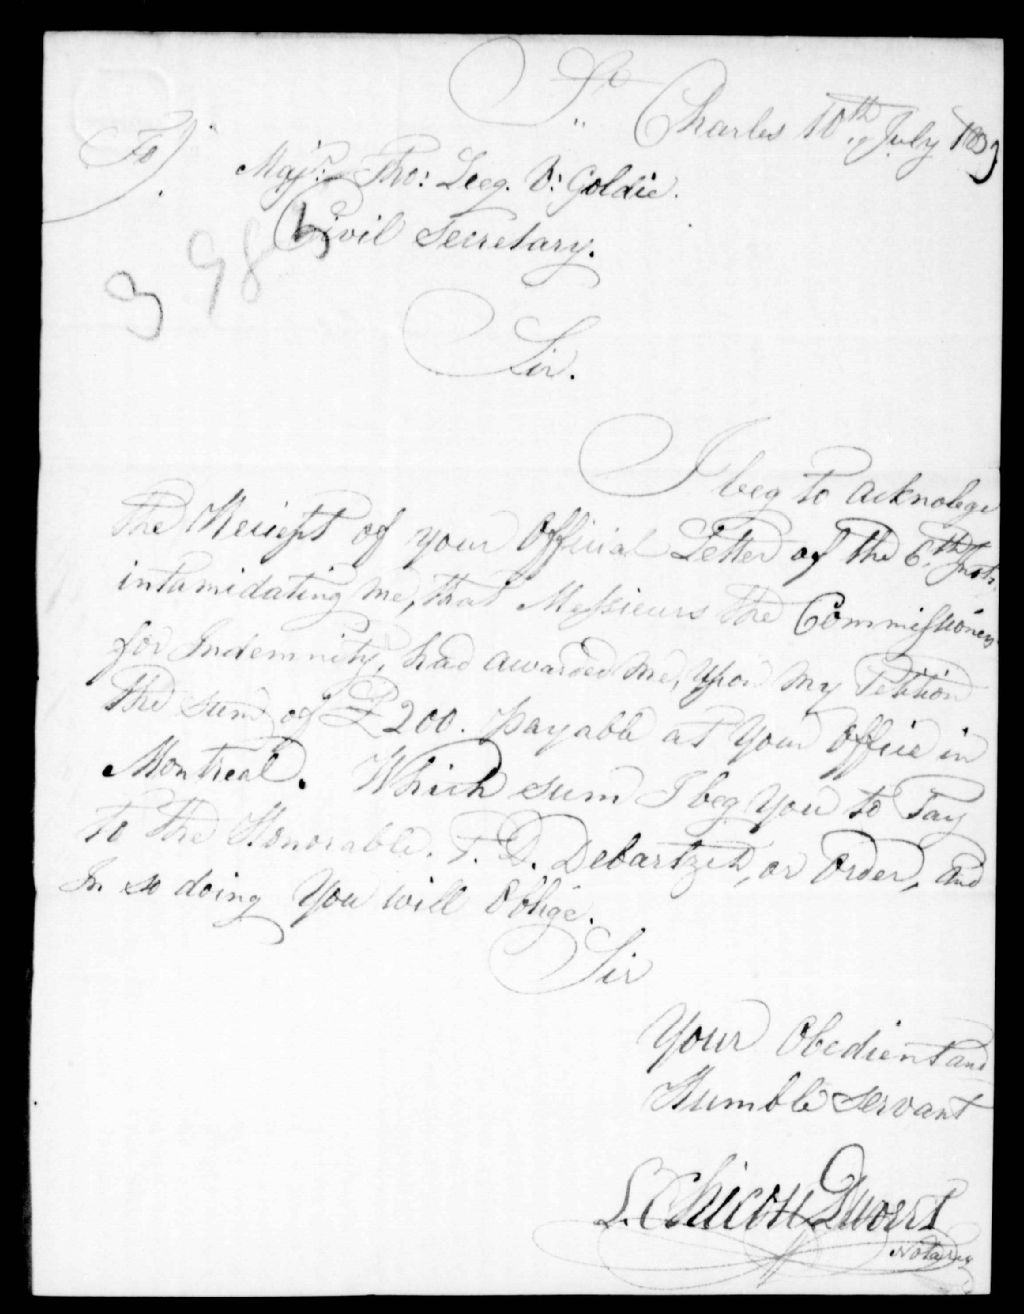 St Charles 10th July 1839
To
Majr. Tho: Leeg. B: Goldie.
Civil Secretary.
3985
Sir.
I beg to acknolege
the Reciept of your Official Letter of the 6th Inst.
intamidating me, that Messieurs the Commissioners
for Indemnity, had awarded me, Upon my Petition
the sum of £200. payable at Your Office in
Montreal. Which sum I beg You to Pay
to the Honorable. P. D. Debartzch, or Order, and
In so doing You will Oblige.
Sir
Your Obedient and
Humble Servant
L. Chicou Duvert
Notaire